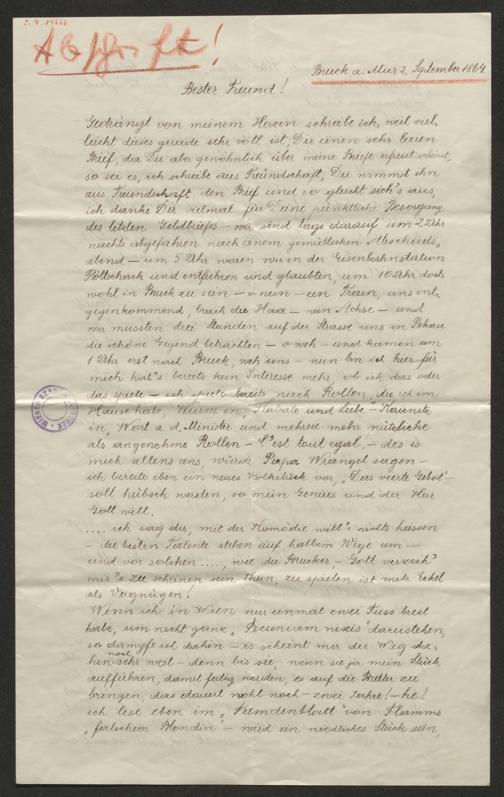 J.N. 24666
Abschrift!
Bruck a. Mur 2. September 1864.
Bester Freund!
Gedrängt von meinem Herzen schreibe ich, weil viel-
leicht dieses gerade sehr voll ist, Dir einen sehr leeren
Brief, da Du aber gewöhnlich über meine Briefe erfreut scheinst,
so sei es, ich schreibe aus Freundschaft, Du nimmst ihn
aus Freundschaft den Brief und so gleicht sich's aus
ich danke Dir vielmal für Deine pünktliche Besorgung
des letzten Geldbriefes – wir sind tags darauf um 2 Uhr
nachts abgefahren nach einem gemütlichen Abschieds-
abend – um 5 Uhr waren wir in der Eisenbahnstation
Pottschach und entfuhren und glaubten, um 10 Uhr doch
wohl in Bruck zu sein – o nein – ein Train, uns ent-
gegenkommend, brach die Haxe – nein Achse – und
wir mussten drei Stunden auf der Strasse uns in
die schöne Gegend betrachten – o weh – und kamen um
1 Uhr erst nach Bruck, weh uns – nun bin ich hier für
mich hat's bereits kein Interesse mehr, ob ich das oder
das spiele – ich spiele bereits nach Rollen, die ich im
Hause habe, Wurm in „Kabale und Liebe – Kaunitz,
in „Wort a. d. Minister und mehrere mehr nützliche
als angenehme Rollen – C'est tout egal, – des is
mich allens eens, würde Papa Wrangel sagen –
ich bereite eben ein neues Volksstück vor, „Das vierte Gebot" –
soll hübsch werden, so mein Genius und der Herr
Gott will.
.... ich sag dir, mit der Komödie will's nichts heissen
– die besten Talente stehen auf halbem Wege um –
und vor solchen ...., wie die Brucker, – Gott verzeih'
mir's zu scheinen sein thun, zu spielen ist mehr Ekel
als Vergnügen!
Wenn ich in Wien nur einmal zwei Fuss breit
habe, um nicht ganz „Pecuniam nixis" dazustehen,
so dampfe ich dahin – es scheint mir der Weg da-
hin noch sehr weit – denn bis sie, wenn sie ja mein Stück
aufführen, damit fertig werden, es auf die Bretter zu
bringen, das dauert wohl noch – zwei Jahre! – he!
ich lese eben im „Fremdenblatt" von Flamms
„falschem Blondin" – wird ein niedliches Stück sein,